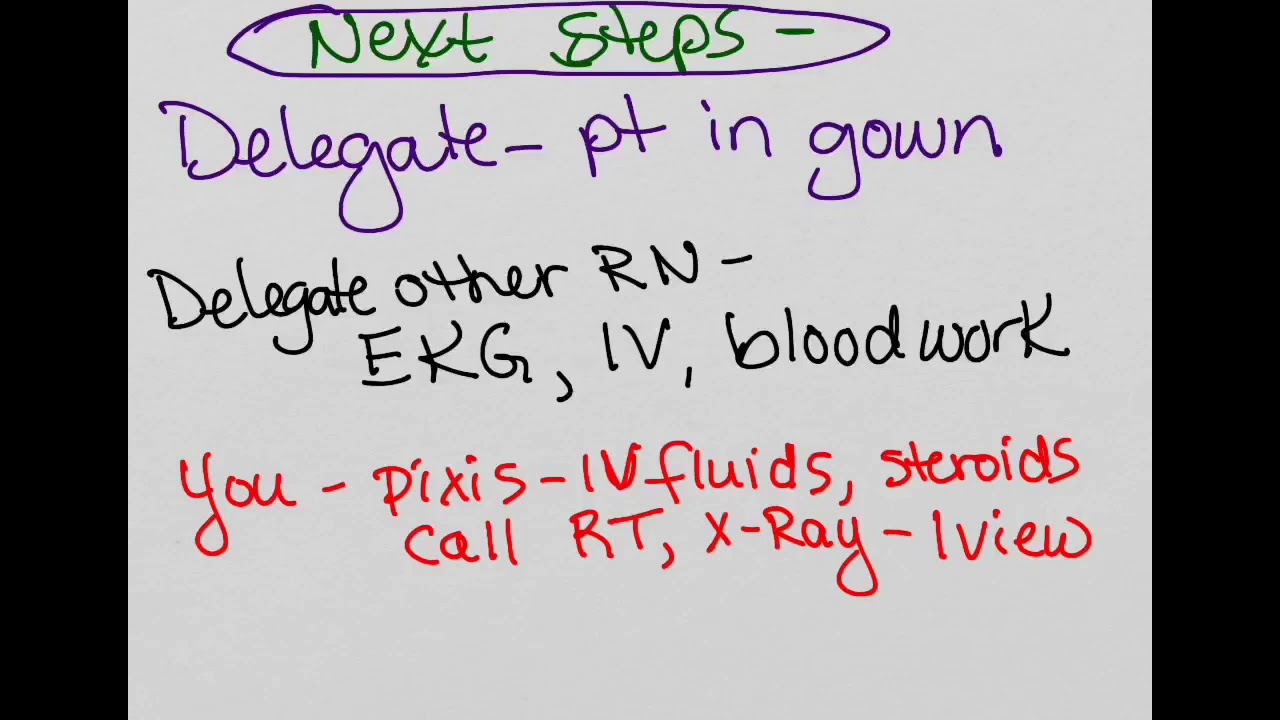 Next steps -
Delegate - pt in gown
Delegate other RN -
EKG, IV, bloodwork
You - pixis - IV fluids, steroids
call RT, X-Ray - 1view